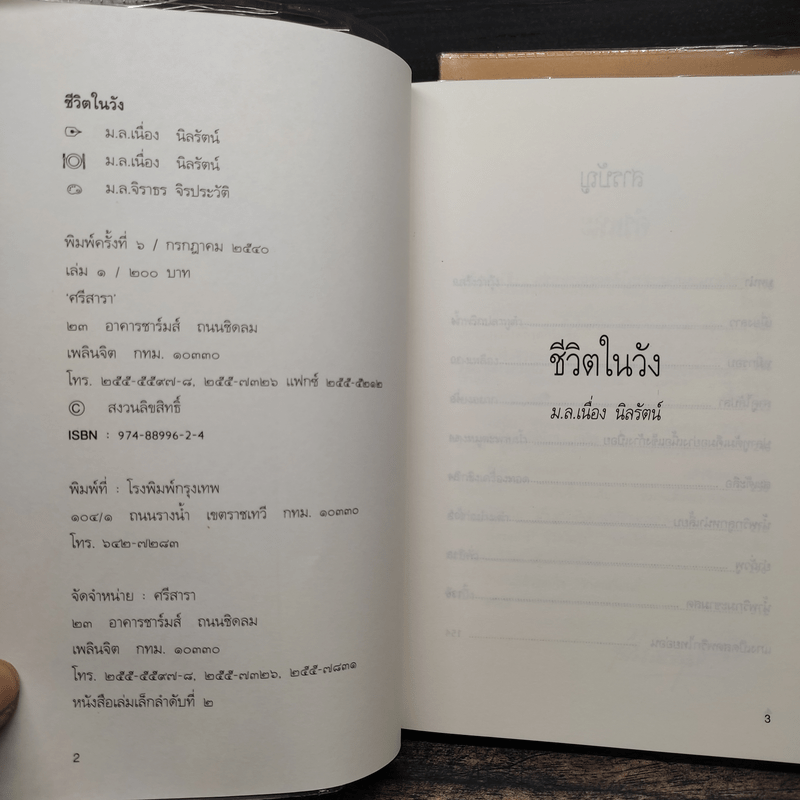 ชีวิตในวัง
ม.ล.เนื่อง นิลรัตน์
ม.ล.เนื่อง นิลรัตน์
ม.ล.จิราธร จิรประวัติ
พิมพ์ครั้งที่ ๖ / กรกฎาคม ๒๕๔๐
เล่ม ๑ / ๒๐๐ บาท
'ศรีสารา'
๒๓ อาคารชาร์มส์ ถนนชิดลม
เพลินจิต กทม. ๑๐๓๓๐
โทร. ๒๕๕-๕๕๙๗-๘, ๒๕๕-๗๓๒๖ แฟกซ์ ๒๕๕-๕๒๑๒
© สงวนลิขสิทธิ์
ISBN : 974-88996-2-4
พิมพ์ที่ : โรงพิมพ์กรุงเทพ
๑๐๔/๑ ถนนรางน้ำ เขตราชเทวี กทม. ๑๐๓๓๐
โทร. ๖๔๒-๗๒๘๓
จัดจำหน่าย : ศรีสารา
๒๓ อาคารชาร์มส์ ถนนชิดลม
เพลินจิต กทม. ๑๐๓๓๐
โทร. ๒๕๕-๕๕๙๗-๘, ๒๕๕-๗๓๒๖, ๒๕๕-๗๘๓๑
หนังสือเล่มเล็กลำดับที่ ๒
2
ชีวิตในวัง
ม.ล.เนื่อง นิลรัตน์
3